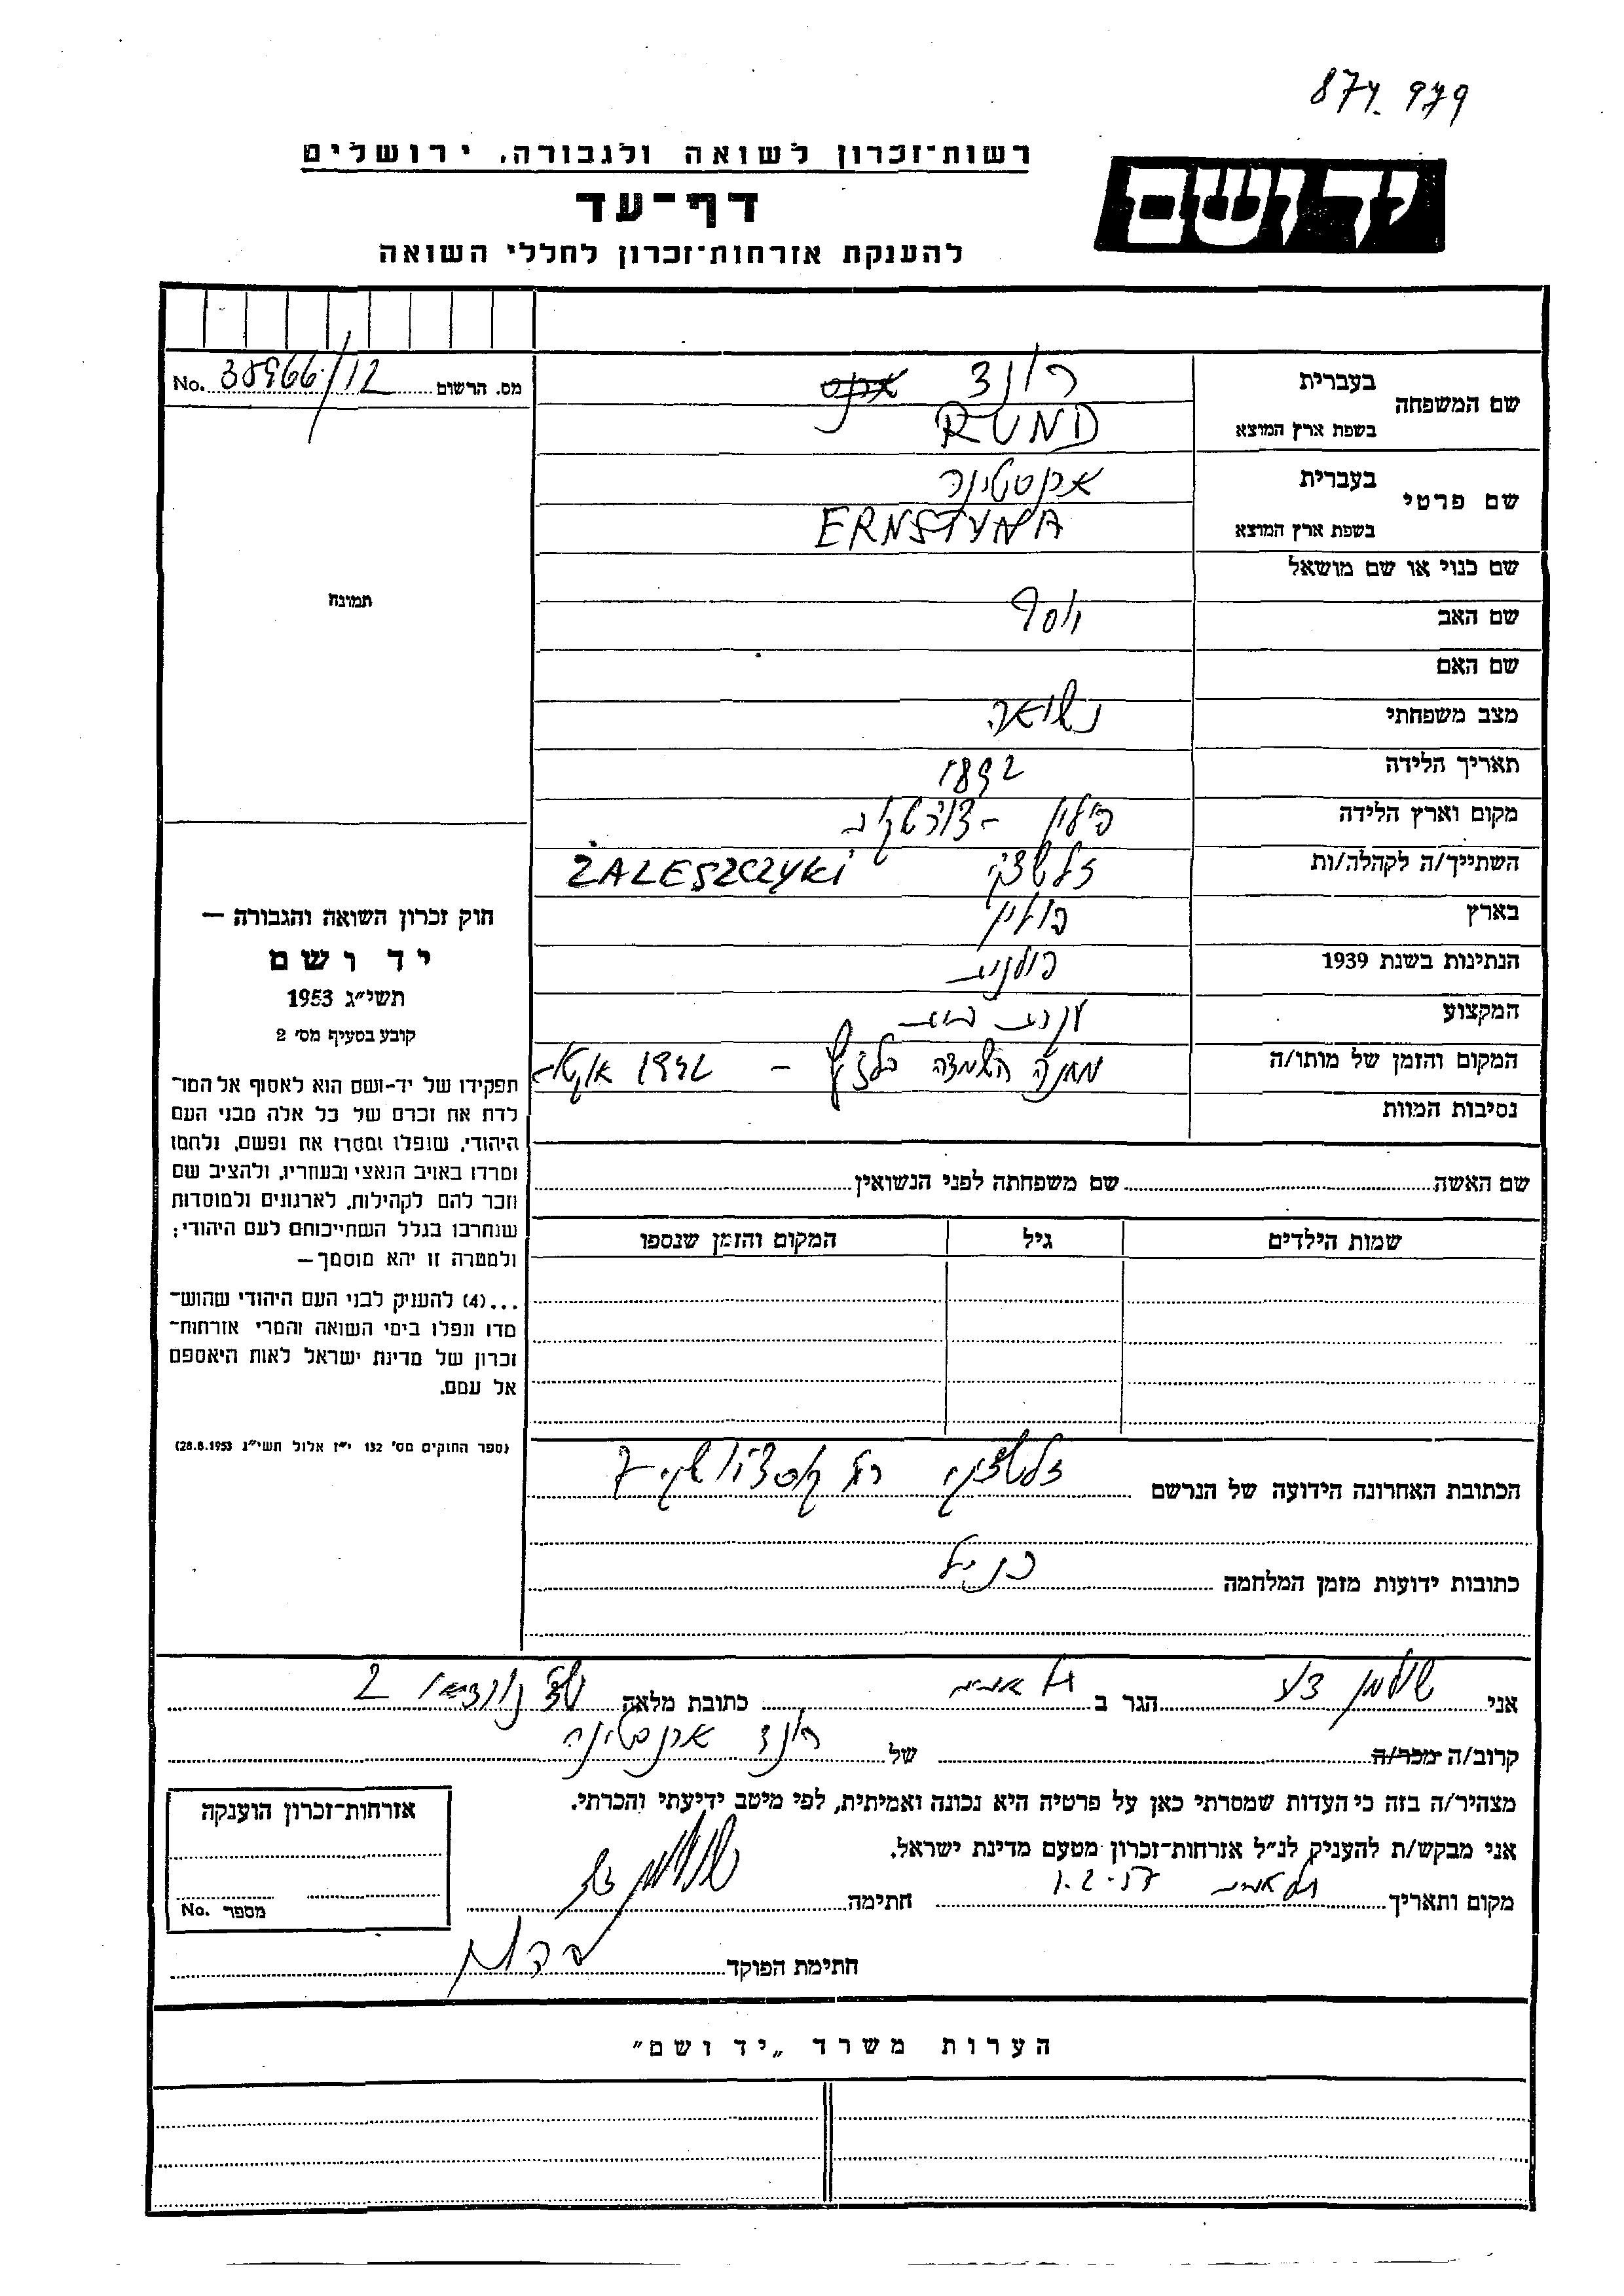 874 979
רשות-זכרון לשואה ולגבורה, ירושלים
יד ושם
דף-עד
להענקת אזרחות-זכרון לחללי השואה
מס. הרשום No. 38966/12
שם המשפחה
בעברית רונד
בשפת ארץ המוצא RUND
שם פרטי
בעברית ארנסטינה
בשפת ארץ המוצא ERNSTYNA
שם כנוי או שם מושאל
שם האב יוסף
שם האם
מצב משפחתי נשואה
תאריך הלידה 1892
מקום וארץ הלידה פולין - צורטקוב
השתייך/ה לקהלה/ות זלשצקי ZALESZCZYKI
בארץ פולין
הנתינות בשנת 1939 פולנית
המקצוע עקרת בית
המקום והזמן של מותו/ה מחנה השמדה בלזץ - 1942 אוקט-
נסיבות המוות
תמונה
חוק זכרון השואה והגבורה —
יד ושם
תשי"ג 1953
קובע בסעיף מס' 2
תפקידו של יד-ושם הוא לאסוף אל המו-
לדת את זכרם של כל אלה מבני העם
היהודי, שנפלו ומסרו את נפשם, נלחמו
ומרדו באויב הנאצי ובעוזריו, ולהציב שם
וזכר להם לקהילות, לארגונים ולמוסדות
שנחרבו בגלל השתייכותם לעם היהודי;
ולמטרה זו יהא מוסמך —
...(4) להעניק לבני העם היהודי שהוש-
מדו ונפלו בימי השואה והמרי אזרחות-
זכרון של מדינת ישראל לאות היאספם
אל עמם.
(ספר החוקים מס' 132 י"ז אלול תשי"ג 28.8.1953)
שם האשה שם משפחתה לפני הנשואין
שמות הילדים גיל המקום והזמן שנספו
הכתובת האחרונה הידועה של הנרשם זלשצקי רח'
כתובות ידועות מזמן המלחמה כנ"ל
אני שולמן הגר ב תל אביב כתובת מלאה 2
קרוב/ה מכר/ה של רונד ארנסטינה
מצהיר/ה בזה כי העדות שמסרתי כאן על פרטיה היא נכונה ואמיתית, לפי מיטב ידיעתי והכרתי.
אני מבקש/ת להעניק לנ"ל אזרחות-זכרון מטעם מדינת ישראל.
מקום ותאריך תל אביב 1.2.57 חתימה
חתימת הפוקד
אזרחות-זכרון הוענקה
מספר No.
הערות משרד „יד ושם"